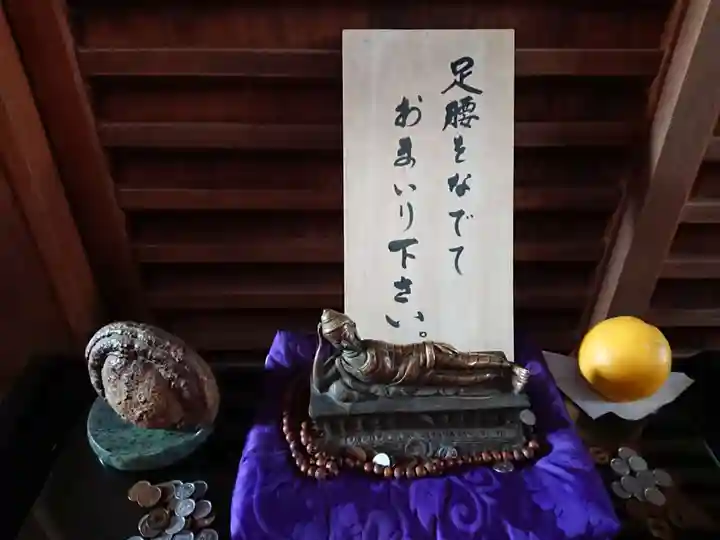 足腰をなでて
おまいり下さい。